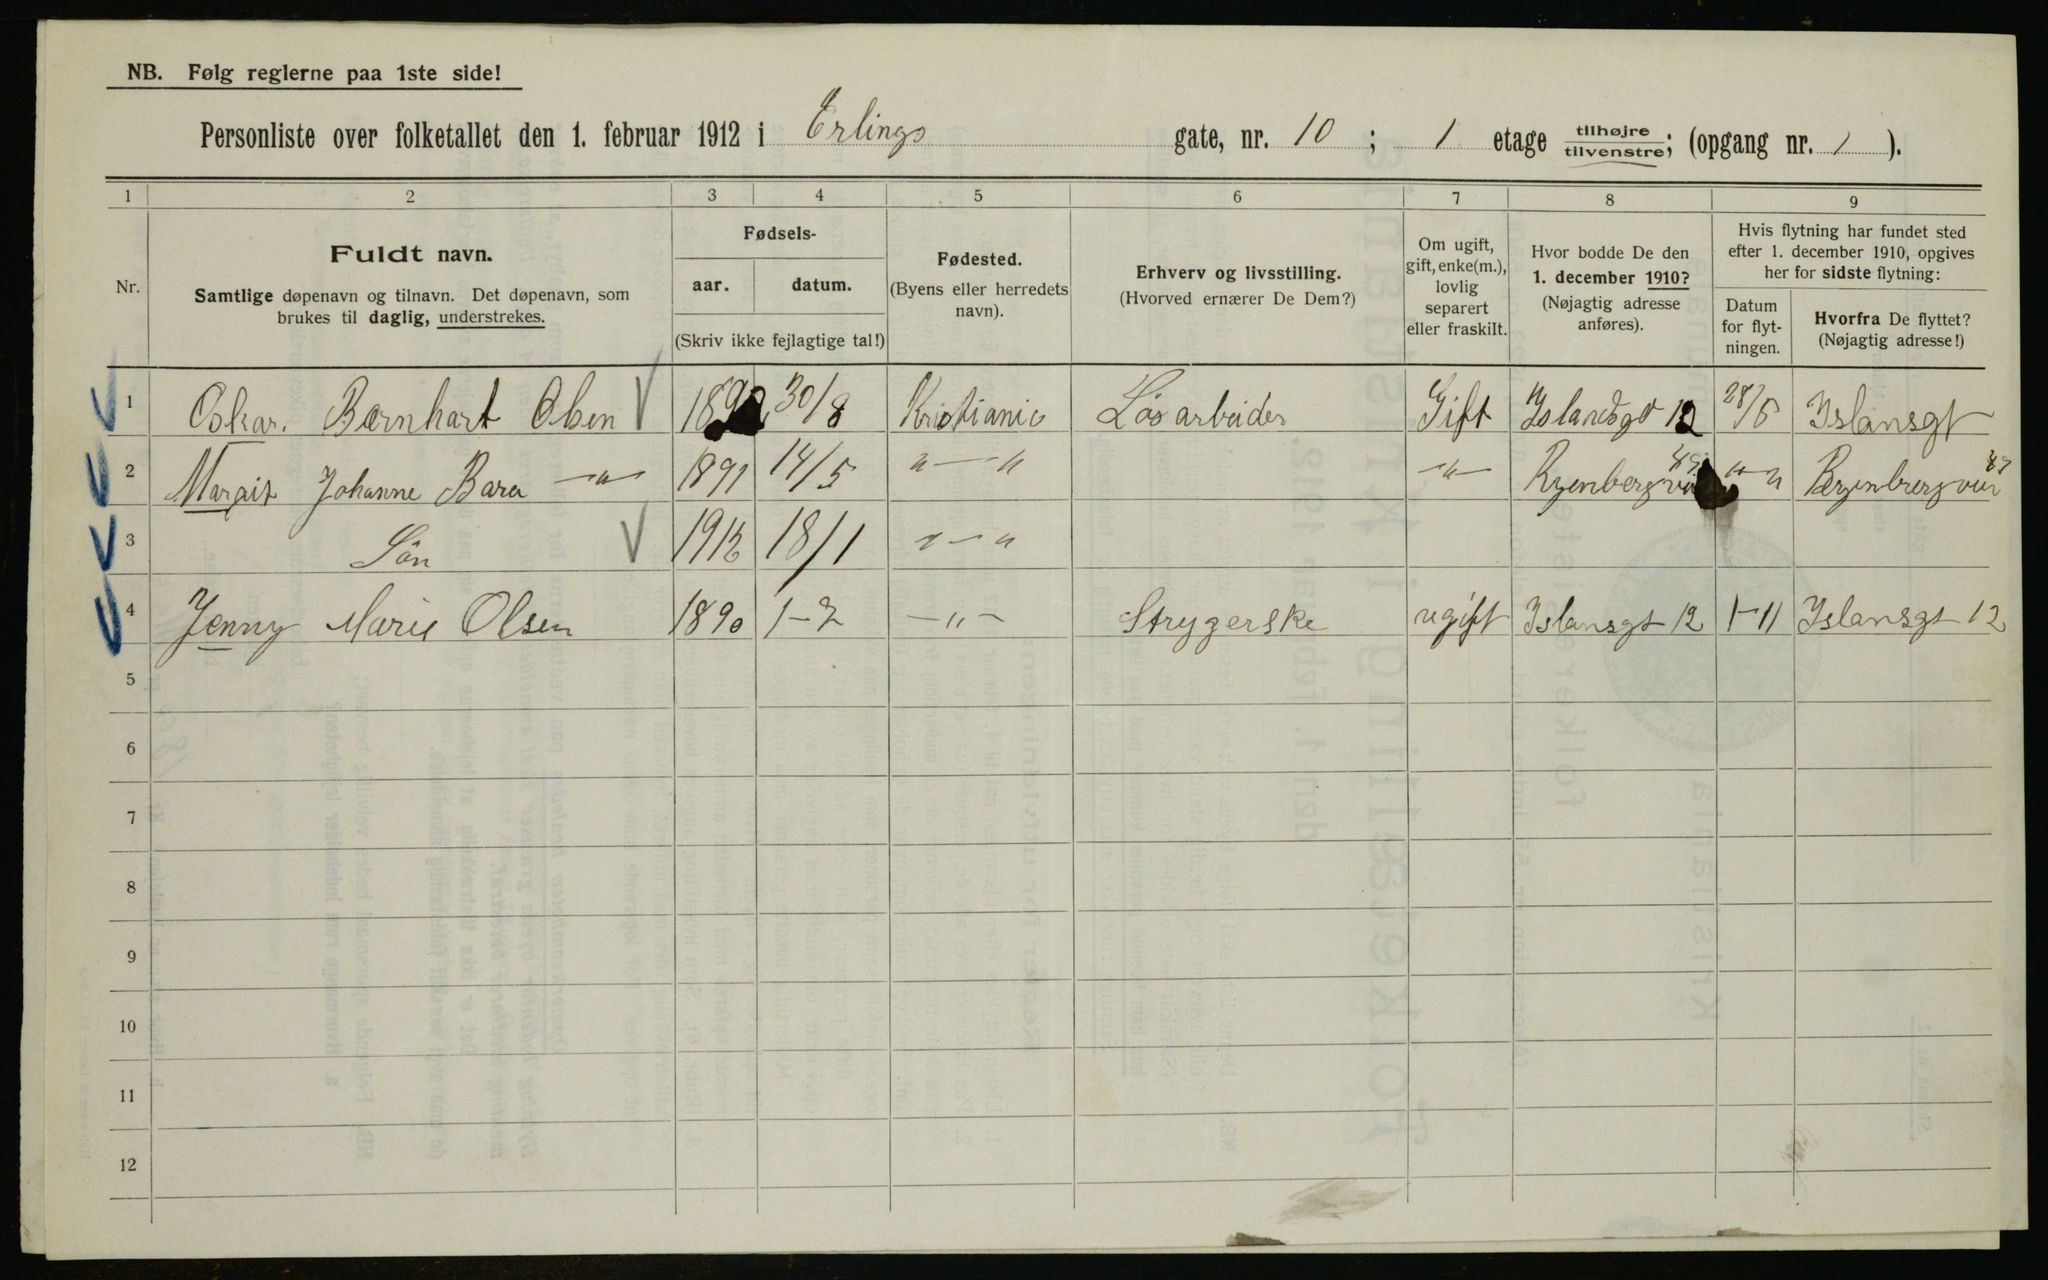 NB. Følg reglerne paa 1ste side!
Personliste over folketallet den 1. februar 1912 i Erlings gate, nr. 10 ; 1 etage tilhøjre tilvenstre; (opgang nr. 1 ).
1 2 3 4 5 6 7 8 9
Nr.
Fuldt navn.
Samtlige døpenavn og tilnavn. Det døpenavn, som
brukes til daglig, understrekes.
Fødsels-
aar. datum.
(Skriv ikke fejlagtige tal!)
Fødested.
(Byens eller herredets
navn).
Erhverv og livsstilling.
(Hvorved ernærer De Dem?)
Om ugift,
gift, enke(m.),
lovlig
separert
eller fraskilt.
Hvor bodde De den
1. december 1910?
(Nøjagtig adresse
anføres).
Hvis flytning har fundet sted
efter 1. december 1910, opgives
her for sidste flytning:
Datum
for flyt-
ningen.
Hvorfra De flyttet?
(Nøjagtig adresse!)
1 Oskar. Bernhart Olsen 30/8 Kristiania Løsarbeider Gift Islandsgt 12 28/5 Islansgt
2 Margit Johanne Bara —"— 1891 14/5 "—" —"— "—"
3 Søn 1912 18/1 "—"
4 Jenny Marie Olsen 1890 1-2 —"— Strygerske ugift Islansgt 12 1-11 Islansgt 12
5
6
7
8
9
10
11
12